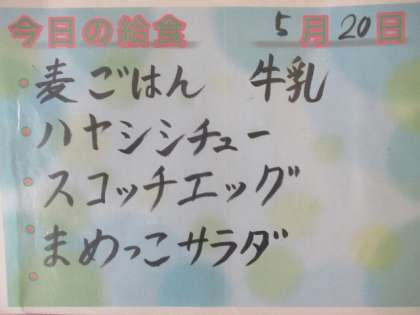 今日の給食 5月20日
麦ごはん 牛乳
ハヤシシチュー
スコッチエッグ
まめっこサラダ